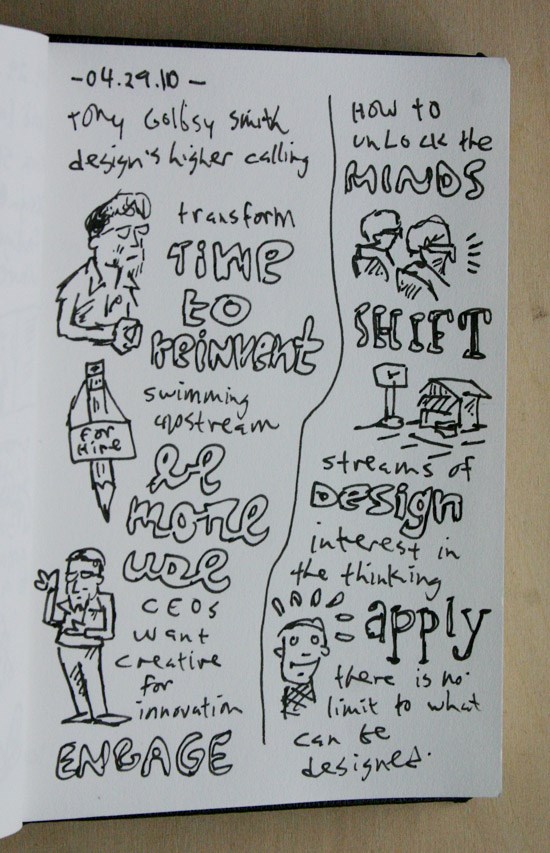 -04.29.10-
Tony Golbsy Smith
design's higher calling
transform
TIME
to
reinvent
swimming
upstream
FOR
HIRE
be
more
use
CEOs
want
creative
for
innovation
ENGAGE
HOW to
unLock the
MINDS
SHIFT
streams of
DESIGN
interest in
the thinking
apply
there is no
limit to what
can be
designed.